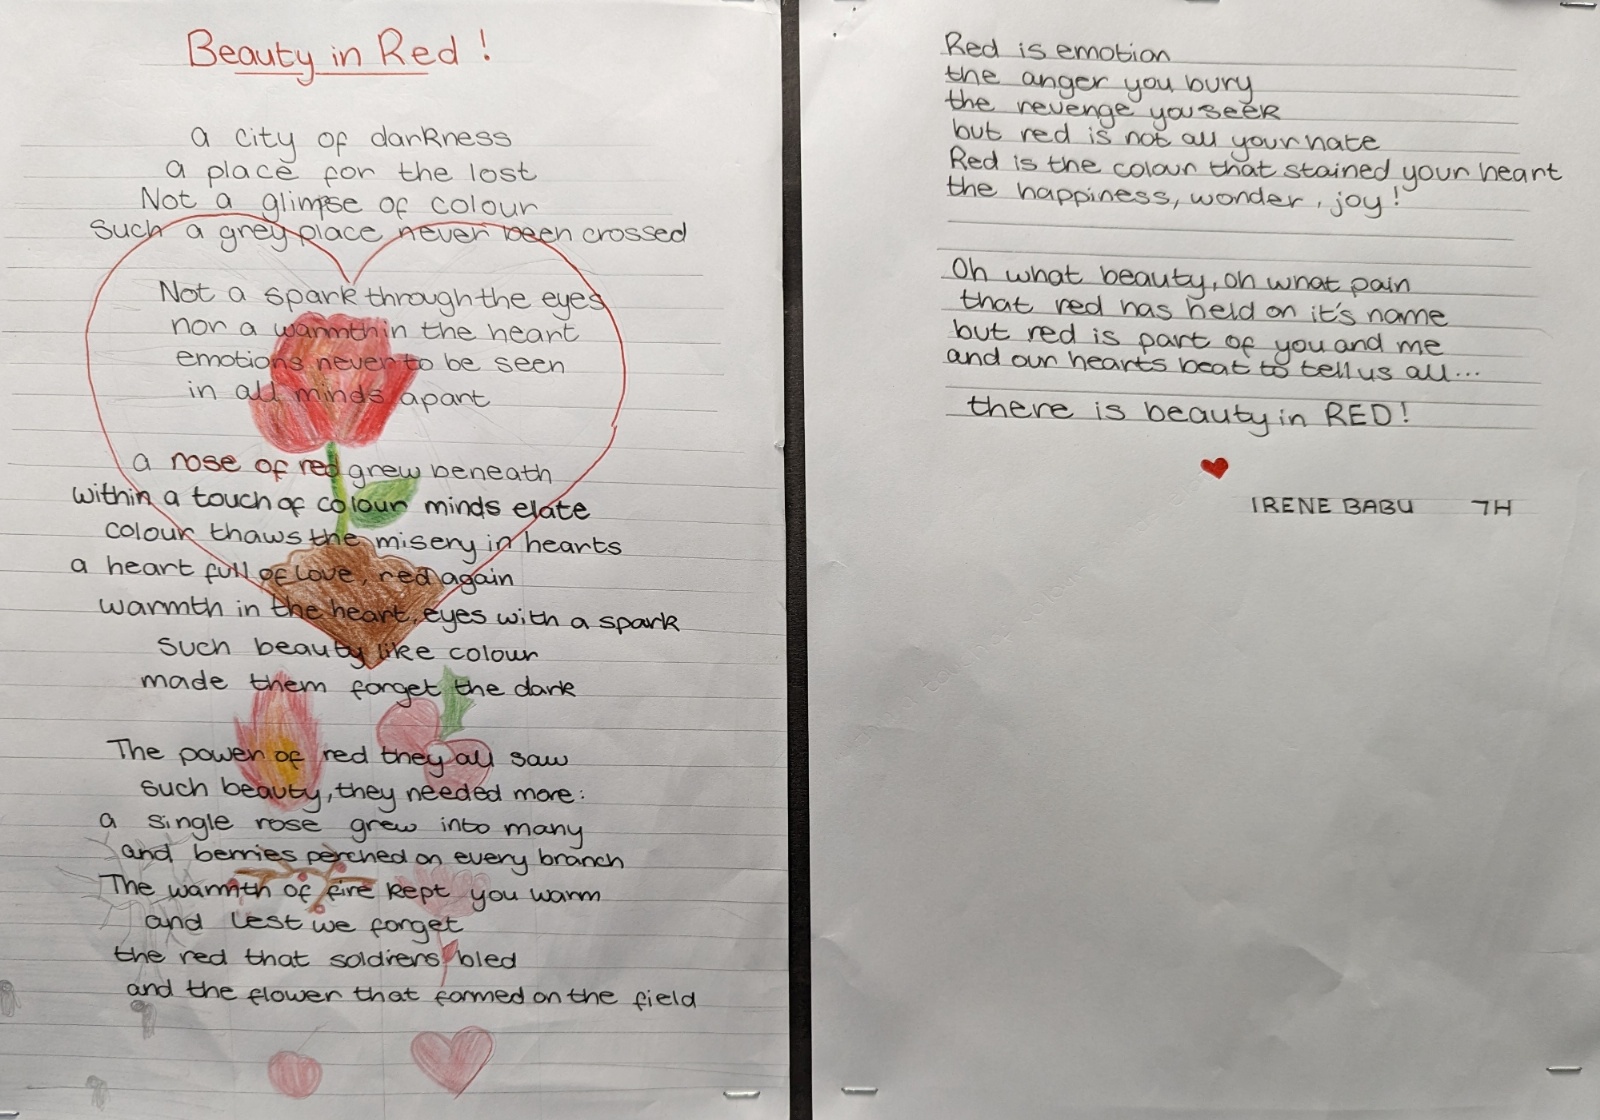 Beauty in Red!
a city of darkness
a place for the lost
Not a glimpse of colour
such a grey place never been crossed
Not a spark through the eyes
nor a warmth in the heart
emotions never to be seen
in all minds apart
a rose of red grew beneath
within a touch of colour minds elate
colour thaws the misery in hearts
a heart full of love, red again
warmth in the heart, eyes with a spark
such beauty like colour
made them forget the dark
The power of red they all saw
such beauty, they needed more:
a single rose grew into many
and berries perched on every branch
The warmth of fire kept you warm
and Lest we forget
the red that soldiers bled
and the flower that formed on the field
Red is emotion
the anger you bury
the revenge you seek
but red is not all your hate
Red is the colour that stained your heart
the happiness, wonder, joy!
Oh what beauty, oh what pain
that red has held on it's name
but red is part of you and me
and our hearts beat to tell us all...
there is beauty in RED!
IRENE BABU 7H